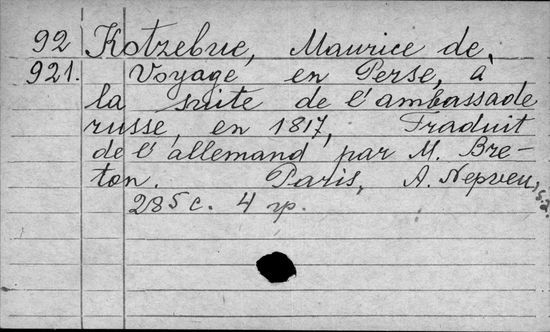 92 Kotzebue, Maurice de,
921. Voyage en Perse, à
la suite de l'ambassade
russe, en 1817, Traduit
de l'allemand par M. Bre-
ton. Paris, A. Nepveu,
285 c. 4 р.